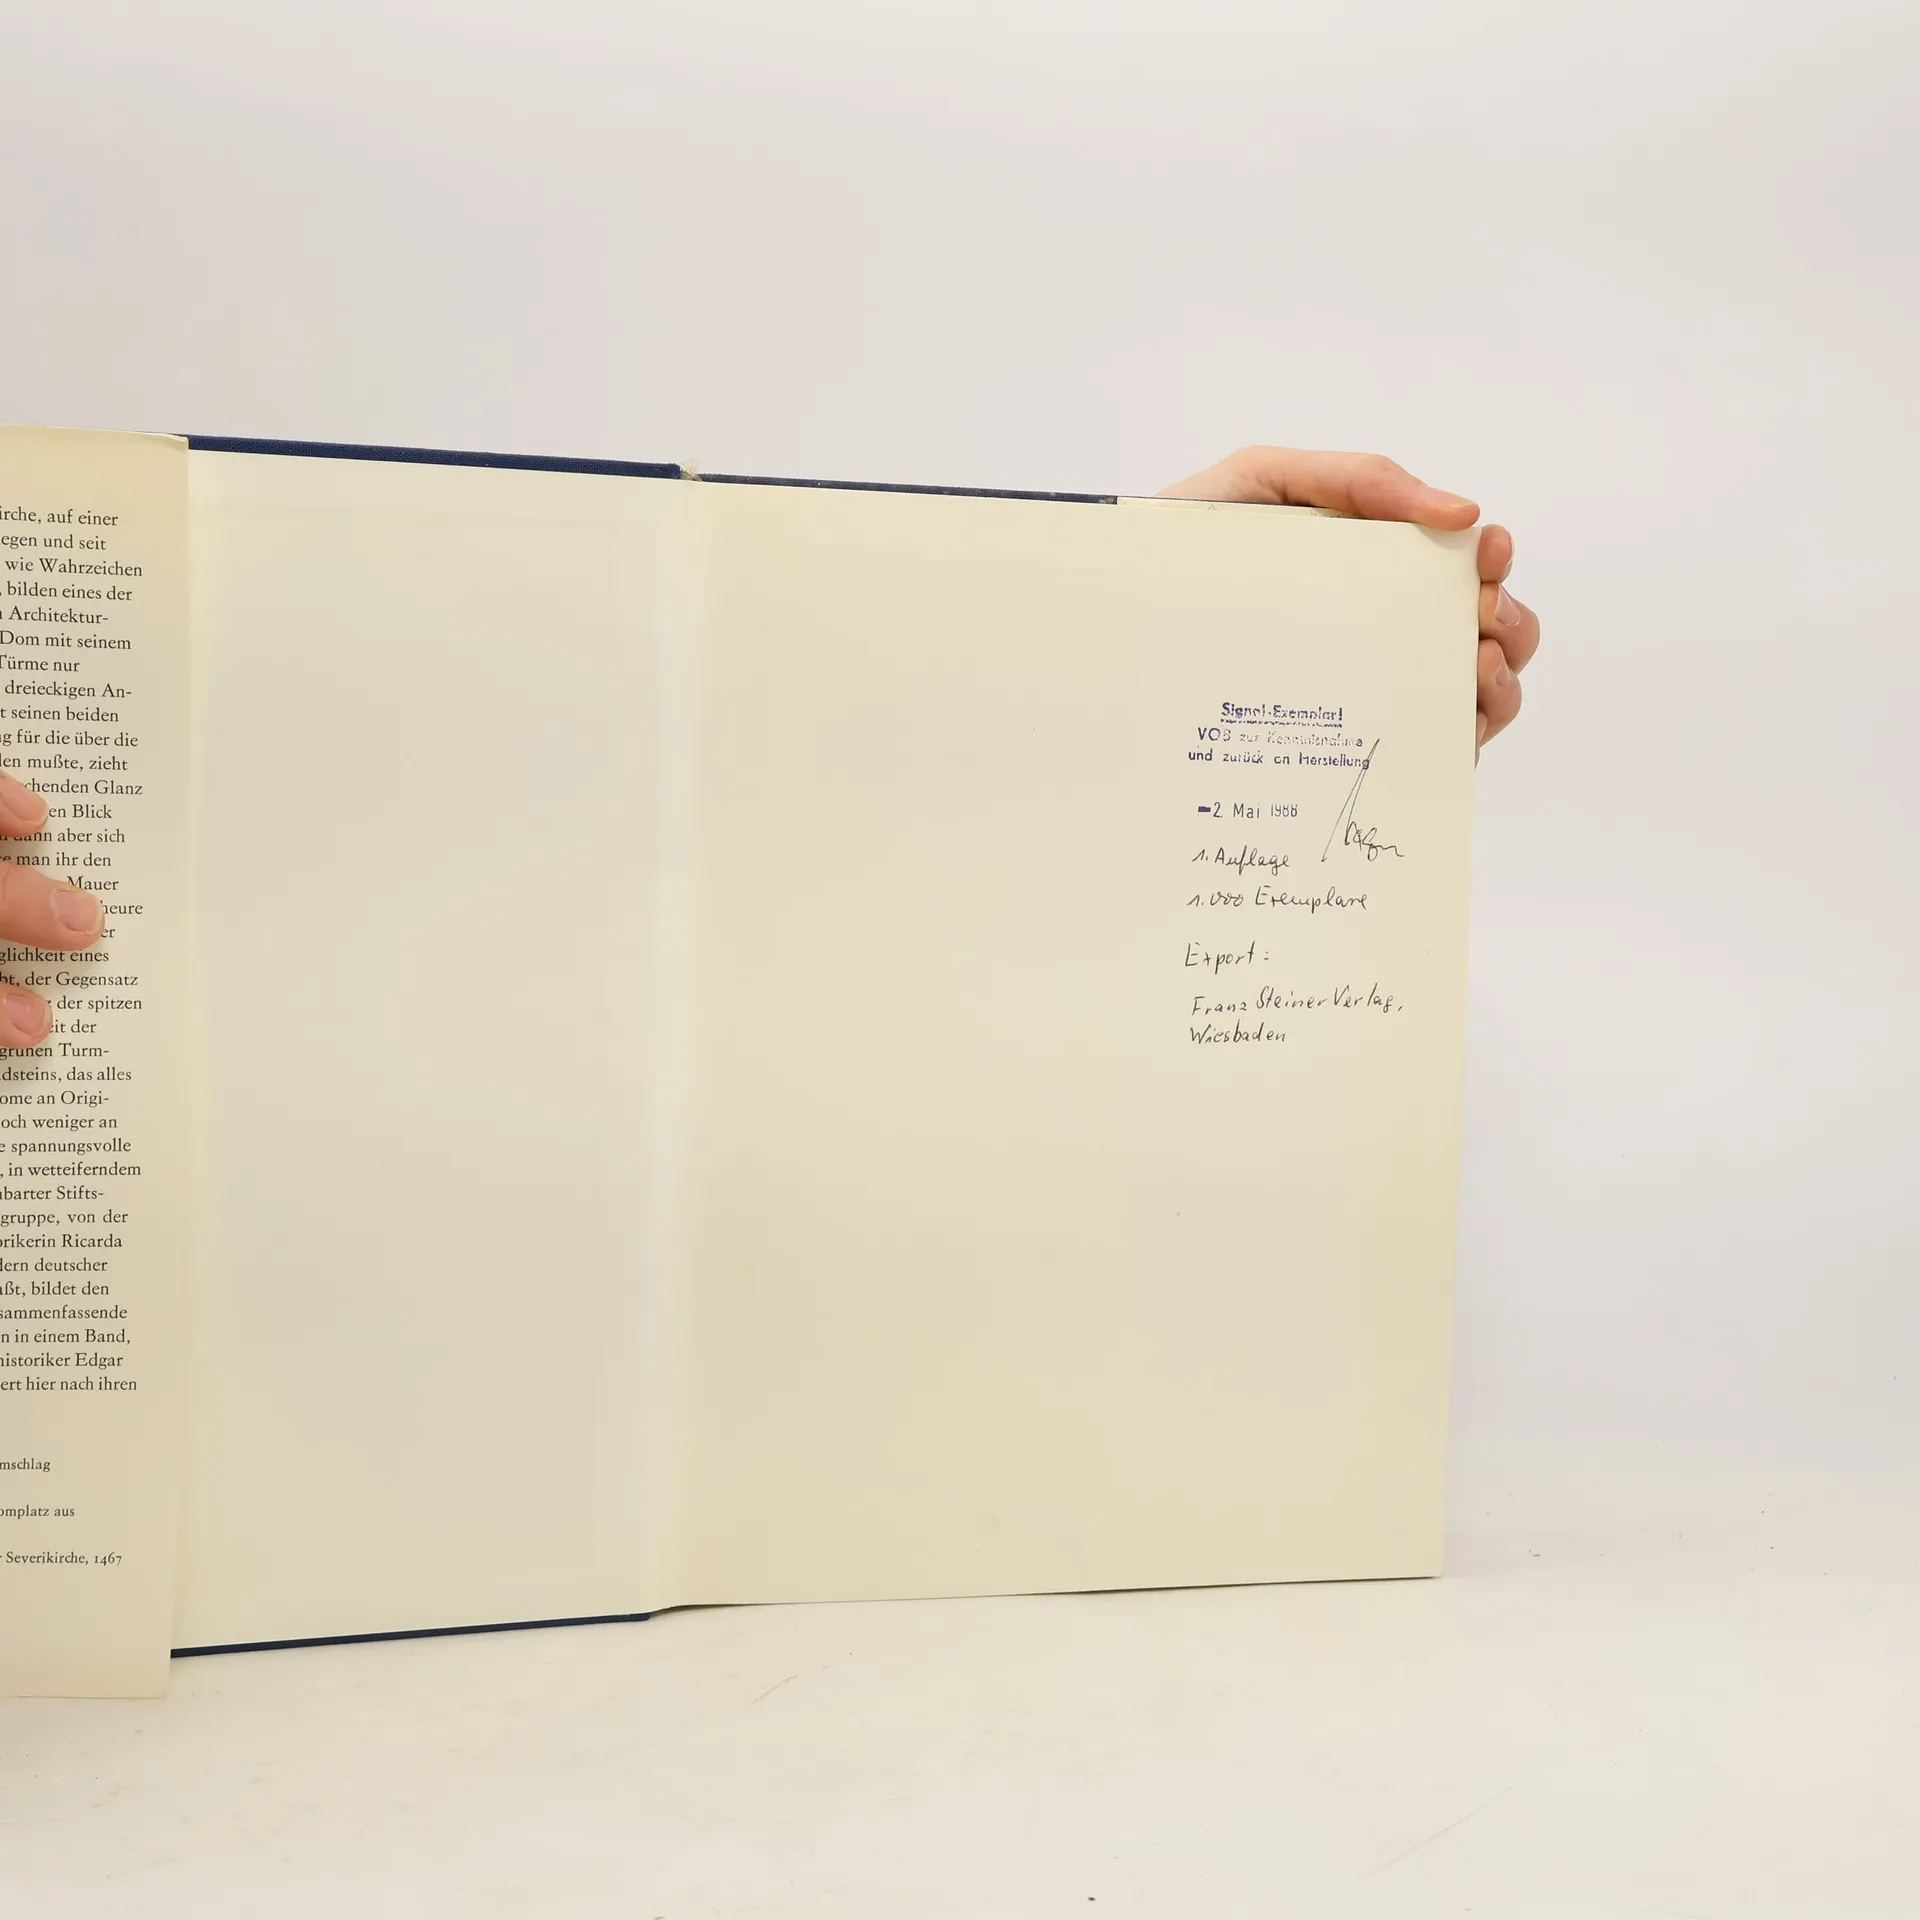 irche, auf einer
egen und seit
wie Wahrzeichen
, bilden eines der
Architektur-
Dom mit seinem
Türme nur
dreieckigen An-
t seinen beiden
g für die über die
en mußte, zieht
chenden Glanz
en Blick
ann aber sich
e man ihr den
Mauer
heure
er
glichkeit eines
bt, der Gegensatz
der spitzen
eit der
grünen Turm-
dsteins, das alles
ome an Origi-
och weniger an
e spannungsvolle
, in wetteiferndem
barter Stifts-
gruppe, von der
orikerin Ricarda
dern deutscher
aßt, bildet den
sammenfassende
n in einem Band,
historiker Edgar
ert hier nach ihren
mschlag
omplatz aus
Severikirche, 1467
Signal-Exemplar!
VOB zur Kenntnisnahme
und zurück an Herstellung
-2. Mai 1988
1. Auflage
1.000 Exemplare
Export:
Franz Steiner Verlag,
Wiesbaden